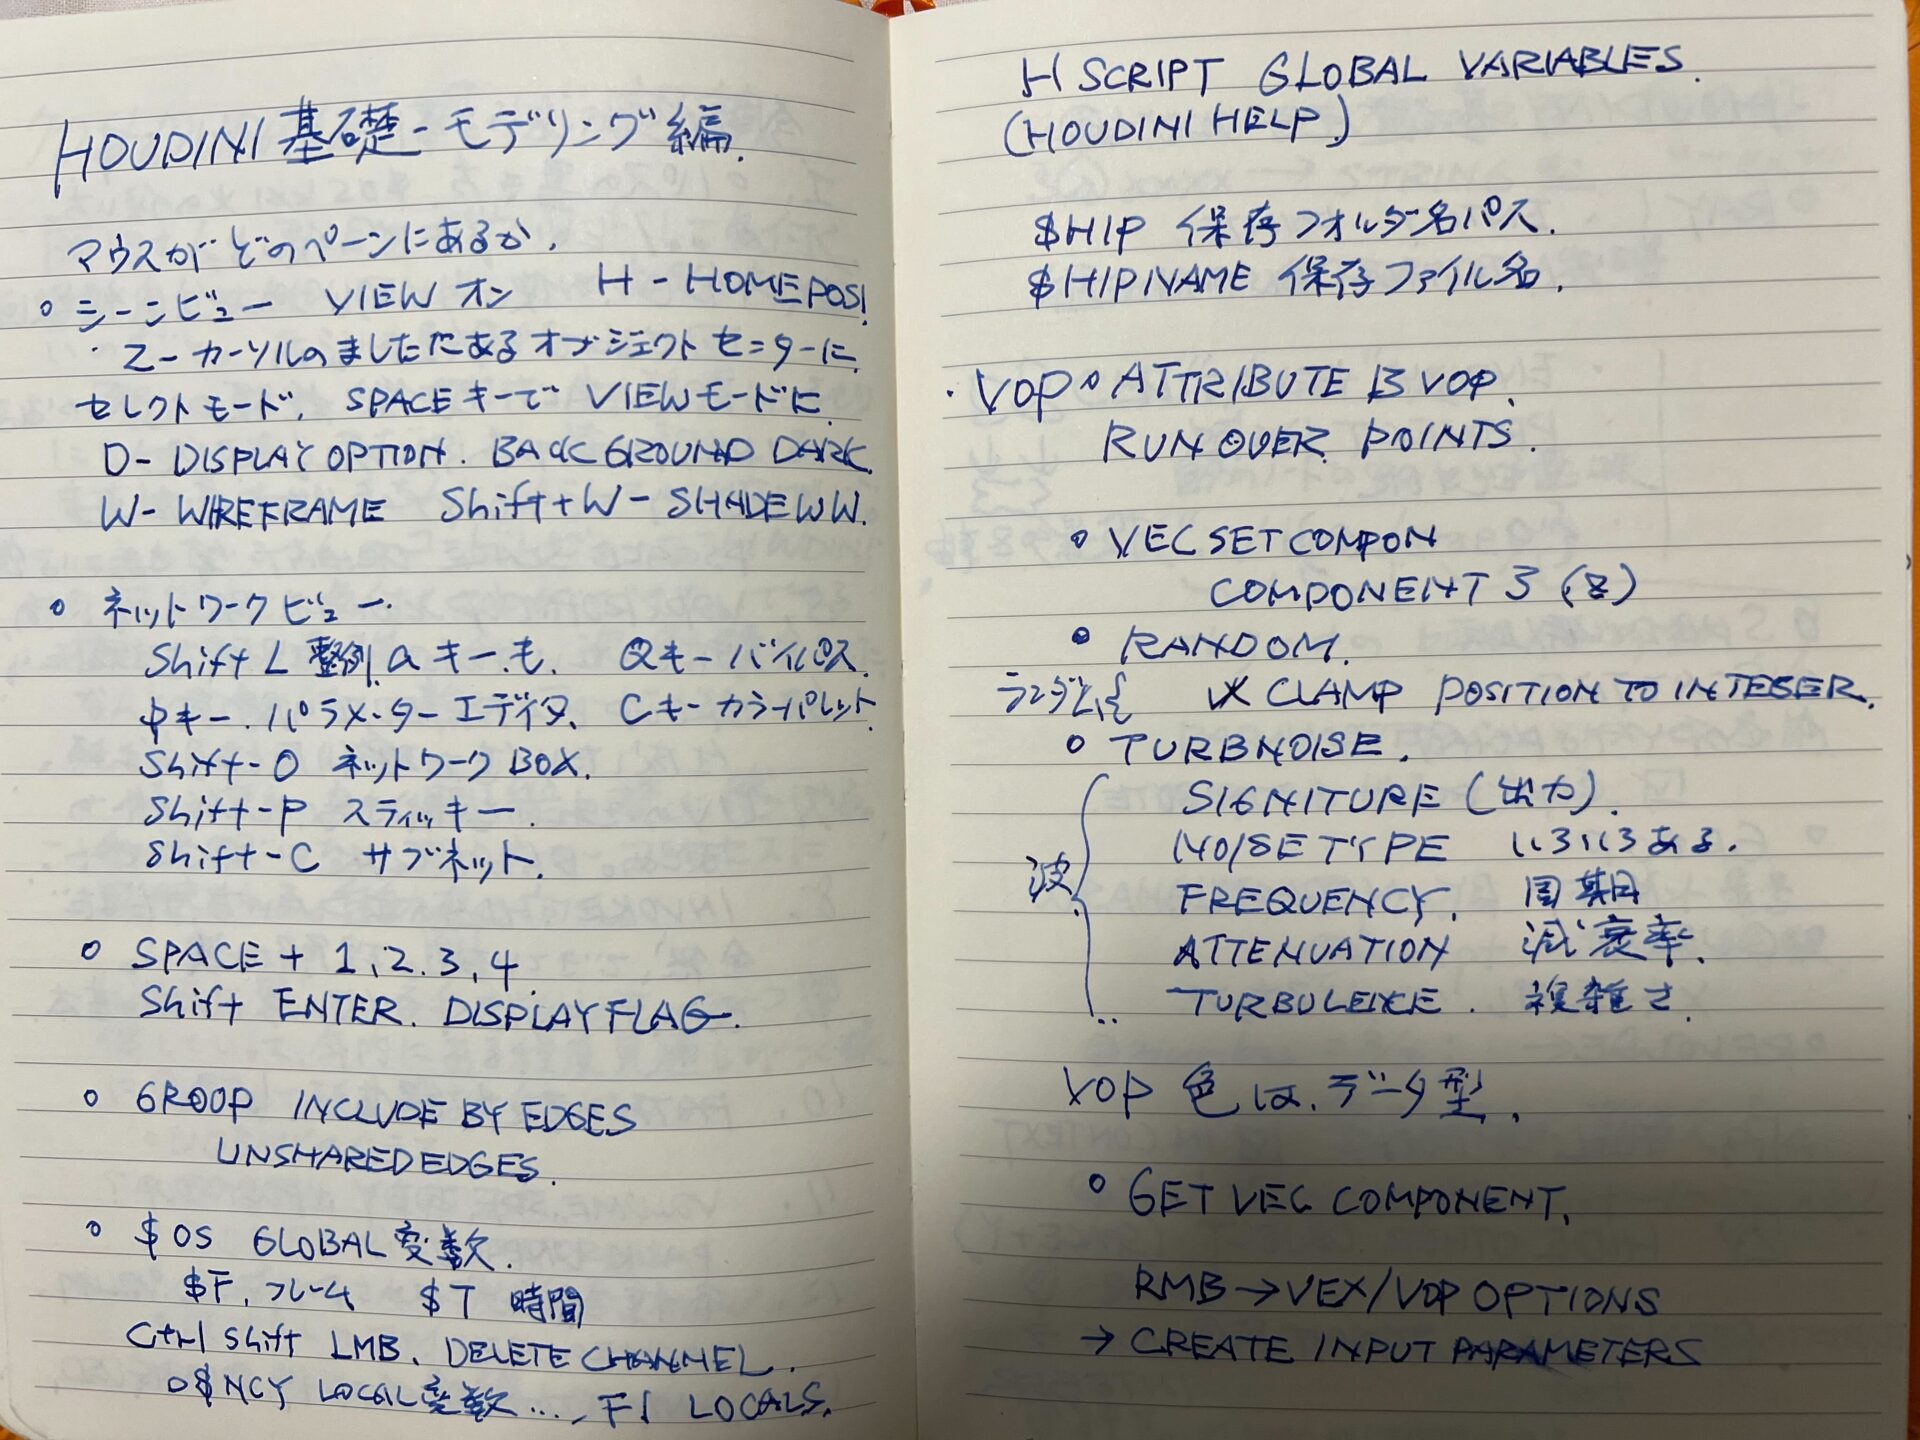 HOUDINI 基礎-モデリング編.
マウスが どのペーンにあるか.
○ シーンビュー VIEW オン H - HOMEPOSI.
・Z - カーソルのましたにあるオブジェクト センターに
セレクトモード. SPACEキーで VIEWモードに
D - DISPLAY OPTION. BACKGROUND DARK.
W - WIREFRAME Shift+W - SHADE W W.
○ ネットワークビュー.
Shift L 整列. aキー.も. Qキー バイパス.
Pキー. パラメーターエディタ. Cキー カラーパレット.
Shift-O ネットワーク BOX.
Shift-P スティッキー.
Shift-C サブネット.
○ SPACE + 1,2.3,4.
Shift ENTER. DISPLAY FLAG.
○ GROOP INCLUDE BY EDGES
UNSHARED EDGES.
○ $OS GLOBAL 変数.
$F, フレーム $T 時間
Ctrl Shift LMB. DELETE CHANNEL.
○$NCY LOCAL変数..., F1 LOCALS.
H SCRIPT GLOBAL VARIABLES.
(HOUDINI HELP.)
$HIP 保存フォルダ名パス.
$HIPNAME 保存ファイル名.
・VOP ○ ATTRIBUTE VOP.
RUN OVER. POINTS.
○ VEC SET COMPON
COMPONENT 3 (z)
○ RANDOM.
ランダム{ CLAMP POSITION TO INTEGER.
○ TURBNOISE.
SIGNITURE (出力).
NOISE TYPE いろいろある.
波 FREQUENCY. 周期
ATTENUATION 減衰率.
TURBULENCE. 複雑さ.
VOP 色は.データ型.
○ GET VEC COMPONENT.
RMB → VEX/VOP OPTIONS
→ CREATE INPUT PARAMETERS